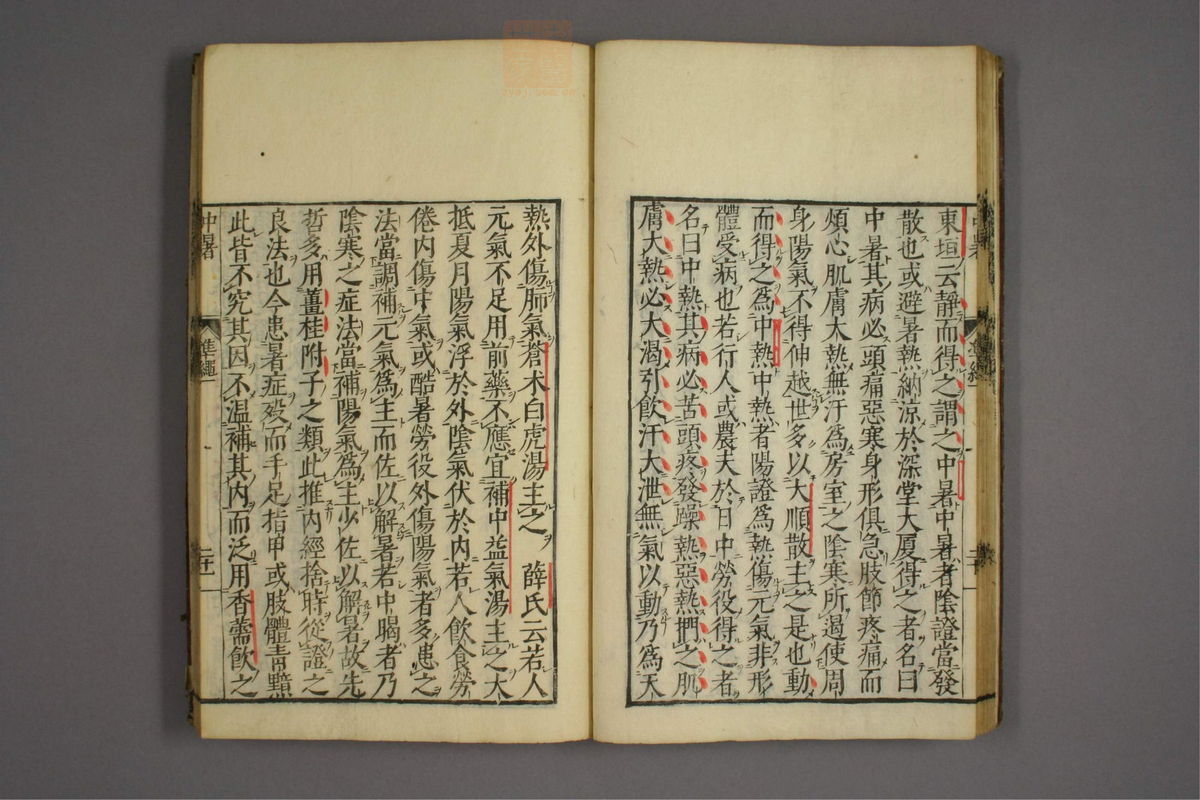 東垣云靜而得之謂之中暑中暑者陰證當發
散也或避暑熱納涼於深堂大厦得之者名曰
中暑其病必頭痛惡寒身形俱急肢節疼痛而
煩心肌膚大熱無汗爲房室之陰寒所遏使周
身陽氣不得伸越世多以大順散主之是也動
而得之爲中熱中熱者陽證爲熱傷元氣非形
體受病也若行人或農夫於日中勞役得之者
名曰中熱其病必苦頭疼發躁熱惡熱捫之肌
膚大熱必大渴引飲汗大泄無氣以動乃爲天
熱外傷肺氣蒼朮白虎湯主之　薛氏云若人
元氣不足用前藥不應宜補中益氣湯主之大
抵夏月陽氣浮於外陰氣伏於内若人飲食勞
倦内傷中氣或酷暑勞役外傷陽氣者多患之
法當調補元氣爲主而佐以解暑若中暍者乃
陰寒之症法當補陽氣爲主少佐以解暑故先
哲多用薑桂附子之類此推内經捨時從證之
良法也今患暑症殁而手足指甲或肢體青黯
此皆不究其因不温補其内而泛用香薷飲之
中暑
準繩
二十一